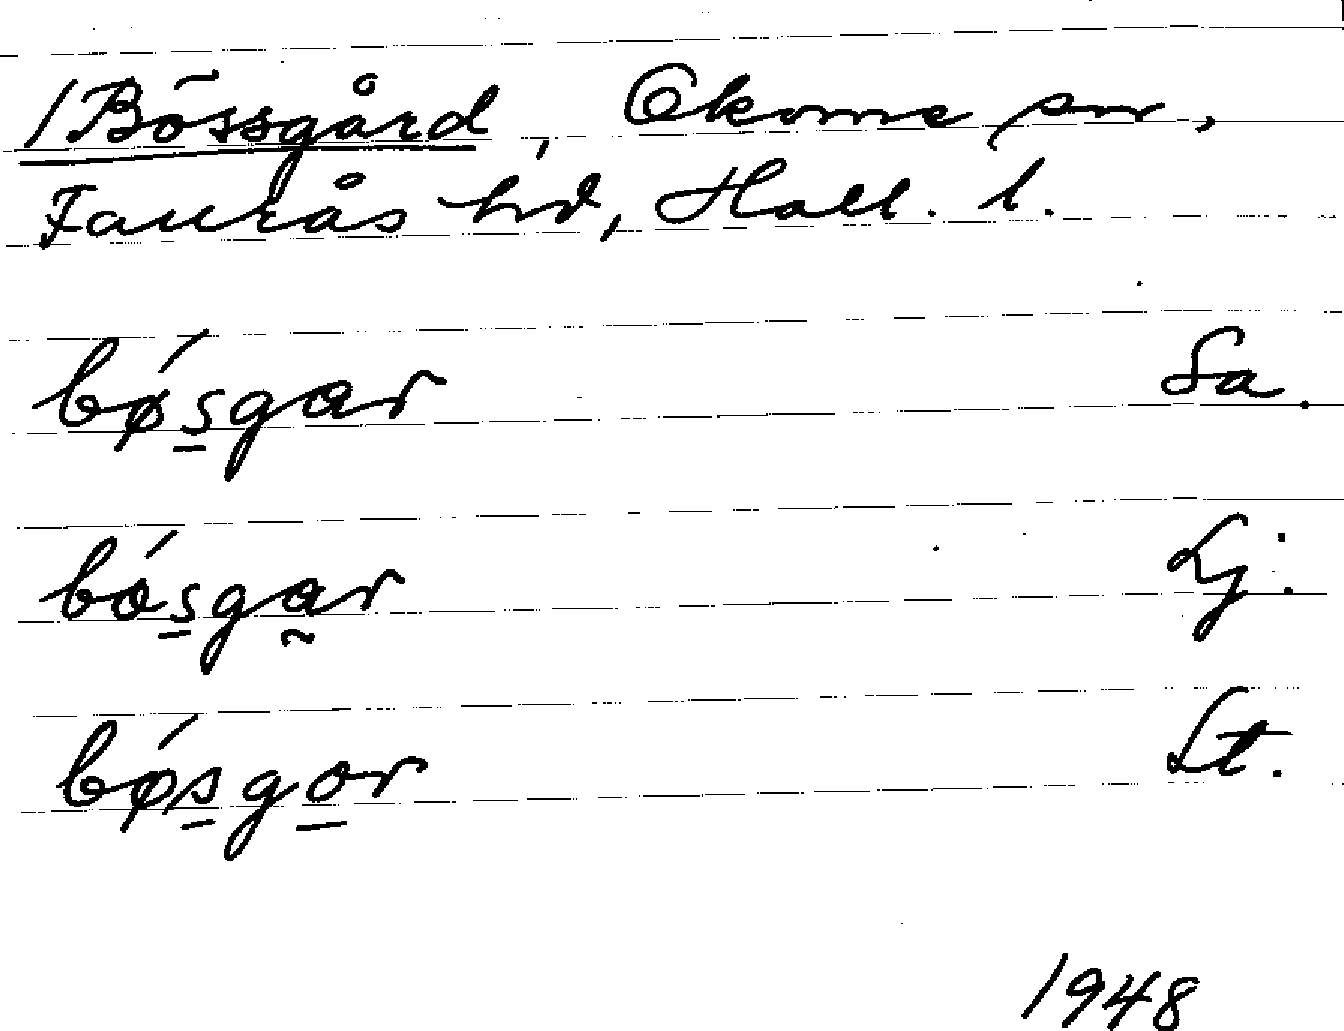 /Bössgård, Okome sn,
Faurås hd, Hall. l.
bǿs̲gar Sa.
bós̲ga̰r Lj.
bǿs̲go̲r St.
1948